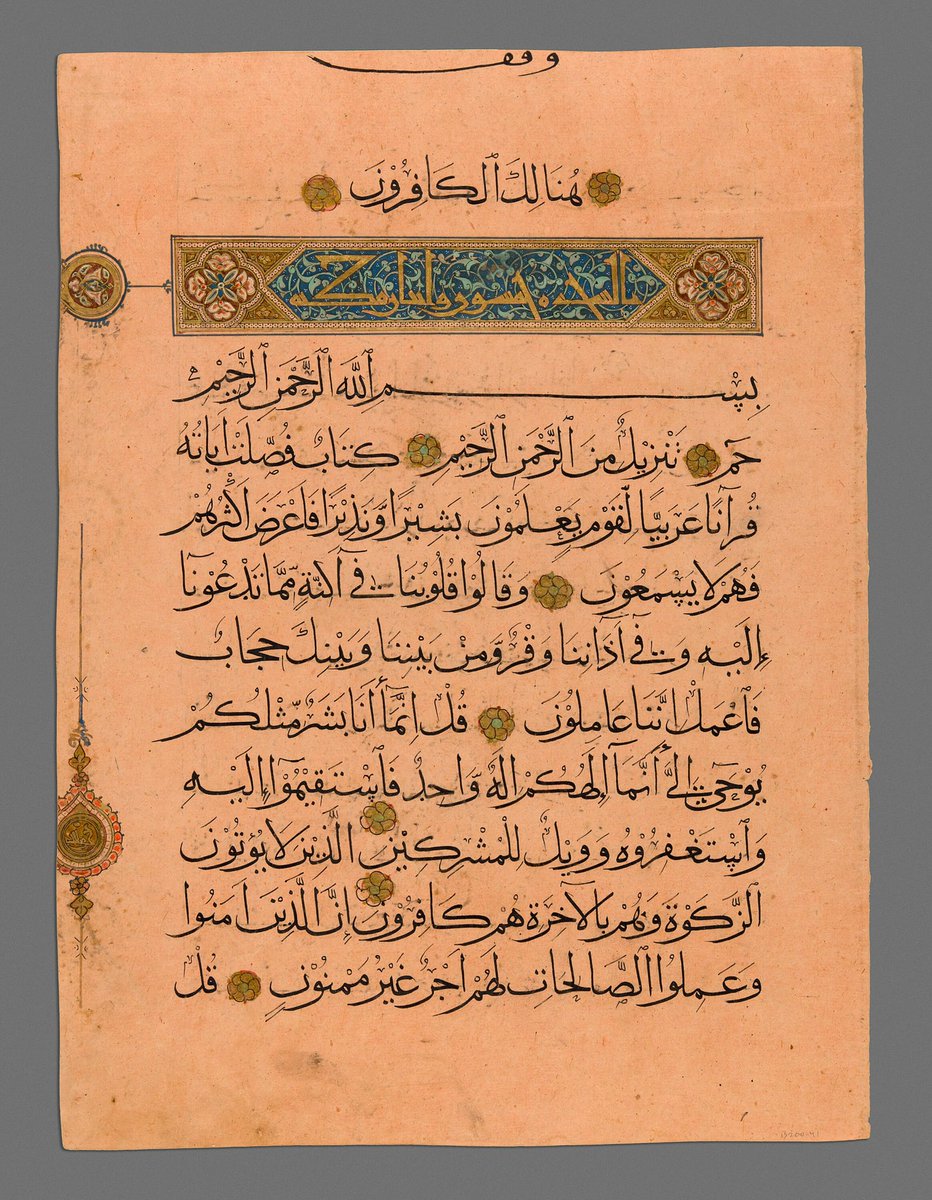 وقف
هُنَالِكَ ٱلْكَافِرُوْنَ
السجدة خمسون مكية
بِسْمِ ٱللّٰهِ ٱلرَّحْمٰنِ ٱلرَّحِيْمِ
حٰمٓ تَنْزِيْلٌ مِنَ ٱلرَّحْمٰنِ ٱلرَّحِيْمِ كِتَابٌ فُصِّلَتْ اٰيَاتُهُ
قُرْآنًا عَرَبِيًّا لِّقَوْمٍ يَعْلَمُوْنَ بَشِيْرًا وَّنَذِيْرًا فَاَعْرَضَ اَكْثَرُهُمْ
فَهُمْ لَا يَسْمَعُوْنَ وَقَالُوْا قُلُوْبُنَا فِىٓ اَكِنَّةٍ مِّمَّا تَدْعُوْنَآ
اِلَيْهِ وَفِىٓ آذَانِنَا وَقْرٌ وَّمِنْ بَيْنِنَا وَبَيْنِكَ حِجَابٌ
فَٱعْمَلْ اِنَّنَا عَامِلُوْنَ قُلْ اِنَّمَآ أَنَا بَشَرٌ مِّثْلُكُمْ
يُوْحٰىٓ اِلَىَّ أَنَّمَآ اِلٰهُكُمْ اِلٰهٌ وَّاحِدٌ فَٱسْتَقِيْمُوْٓا اِلَيْهِ
وَٱسْتَغْفِرُوْهُ وَوَيْلٌ لِلْمُشْرِكِيْنَ الَّذِيْنَ لَا يُؤْتُوْنَ
ٱلزَّكٰوةَ وَهُمْ بِالْآخِرَةِ هُمْ كَافِرُوْنَ اِنَّ الَّذِيْنَ اٰمَنُوا
وَعَمِلُوا ٱلصَّالِحَاتِ لَهُمْ اَجْرٌ غَيْرُ مَمْنُوْنٍ قُلْ